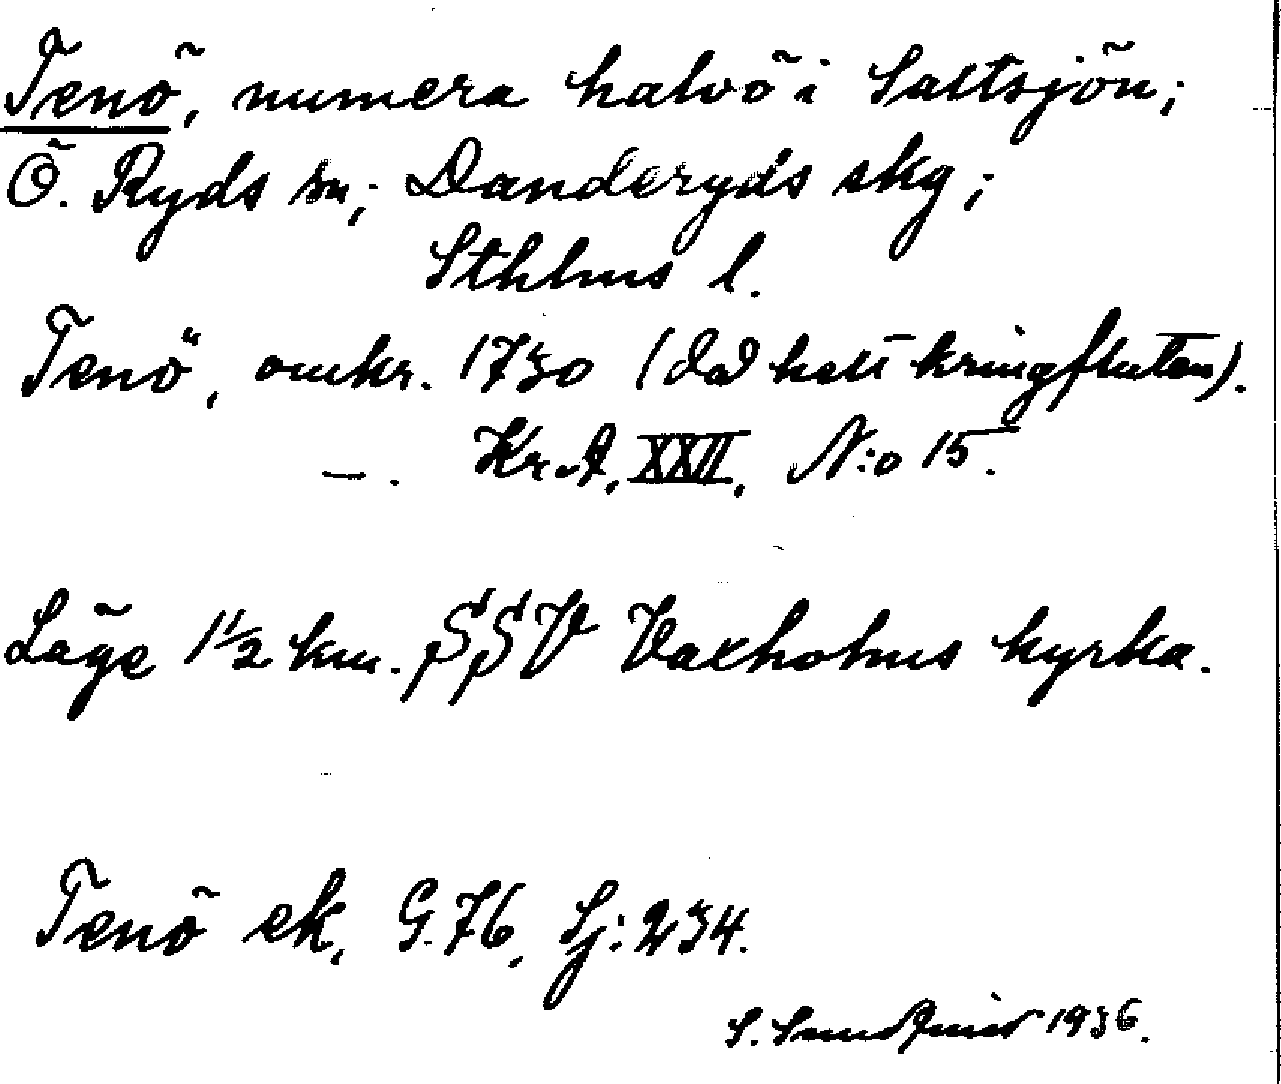 Tenö, numera halvö i Saltsjön;
Ö. Ryds sn; Danderyds skg;
Sthlms l.
Tenö, omkr. 1730 (då helt kringfluten).
—. Kr. A, XXII, N:o 15.
Läge 1 1/2 km. SSV Vaxholms kyrka.
Tenö ek, G. 76, Sj: 234.
S. Sundqvist 1936.